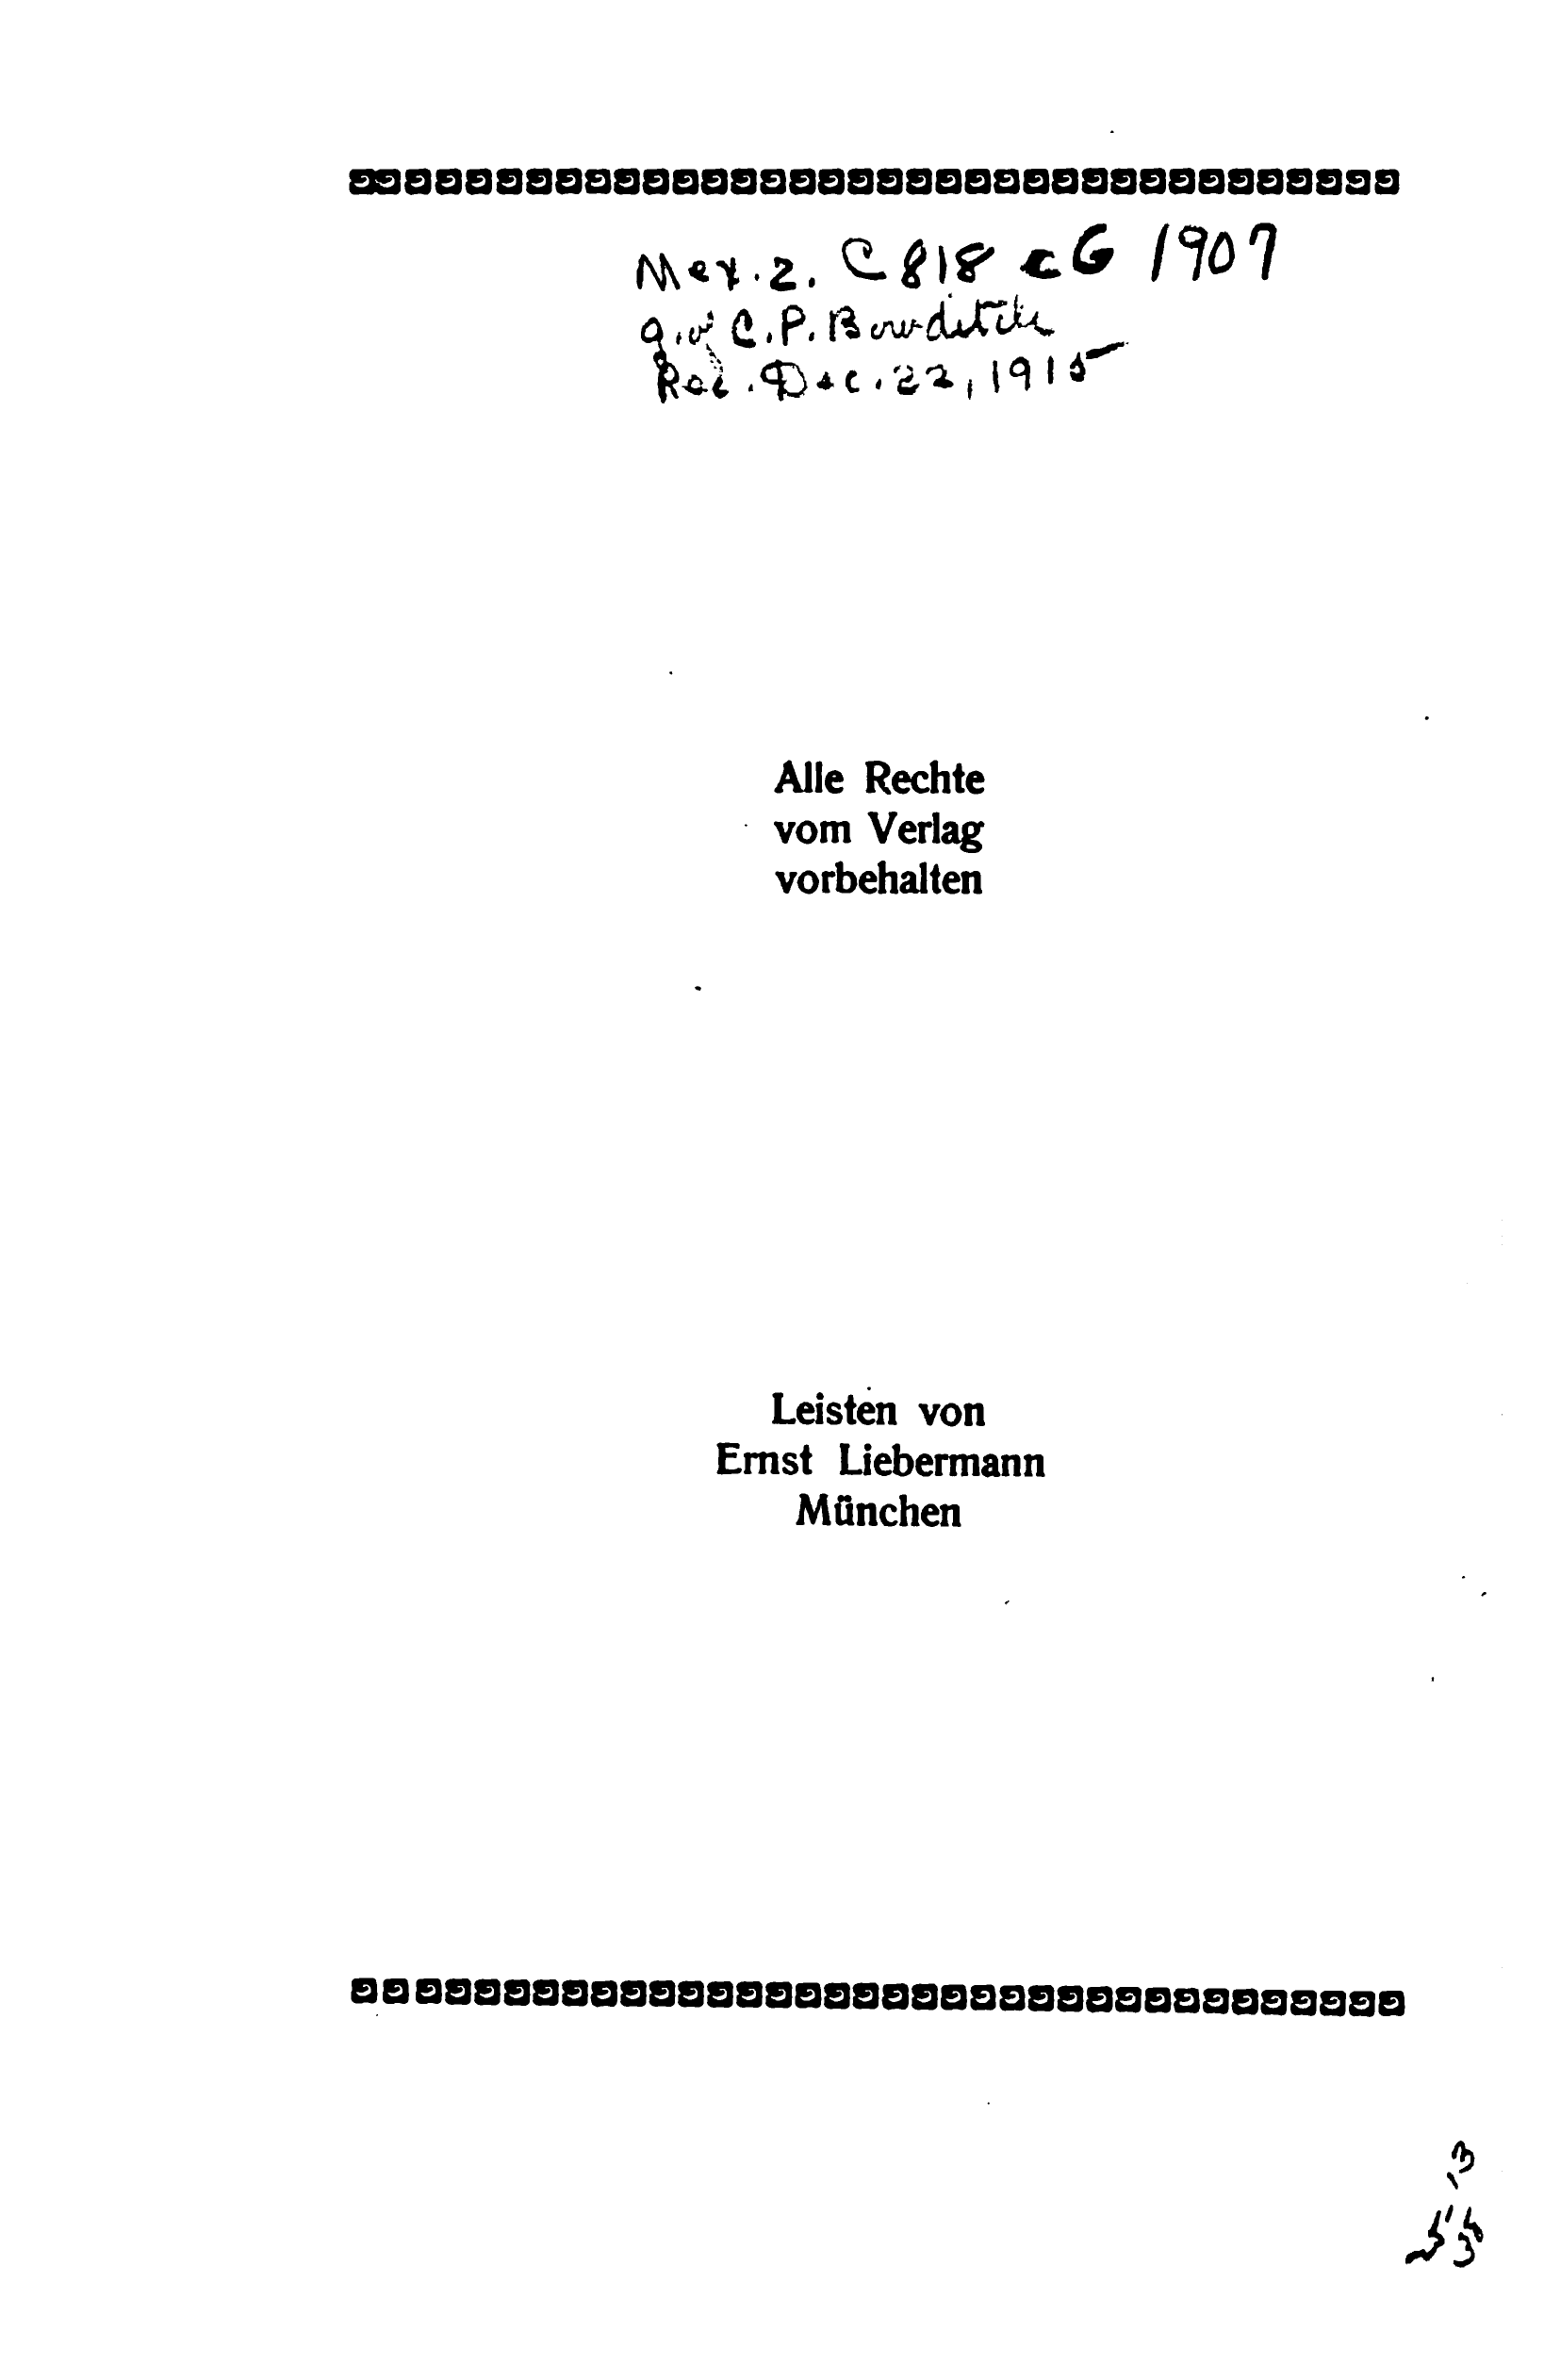 Mex.2. C818 cG 1907
g. of C.P. Bowditch
Rec. Dec. 22, 1915
Alle Rechte
vom Verlag
vorbehalten
Leisten von
Ernst Liebermann
München